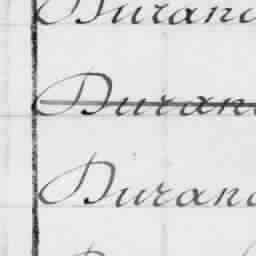 Durand
Durand
Durand